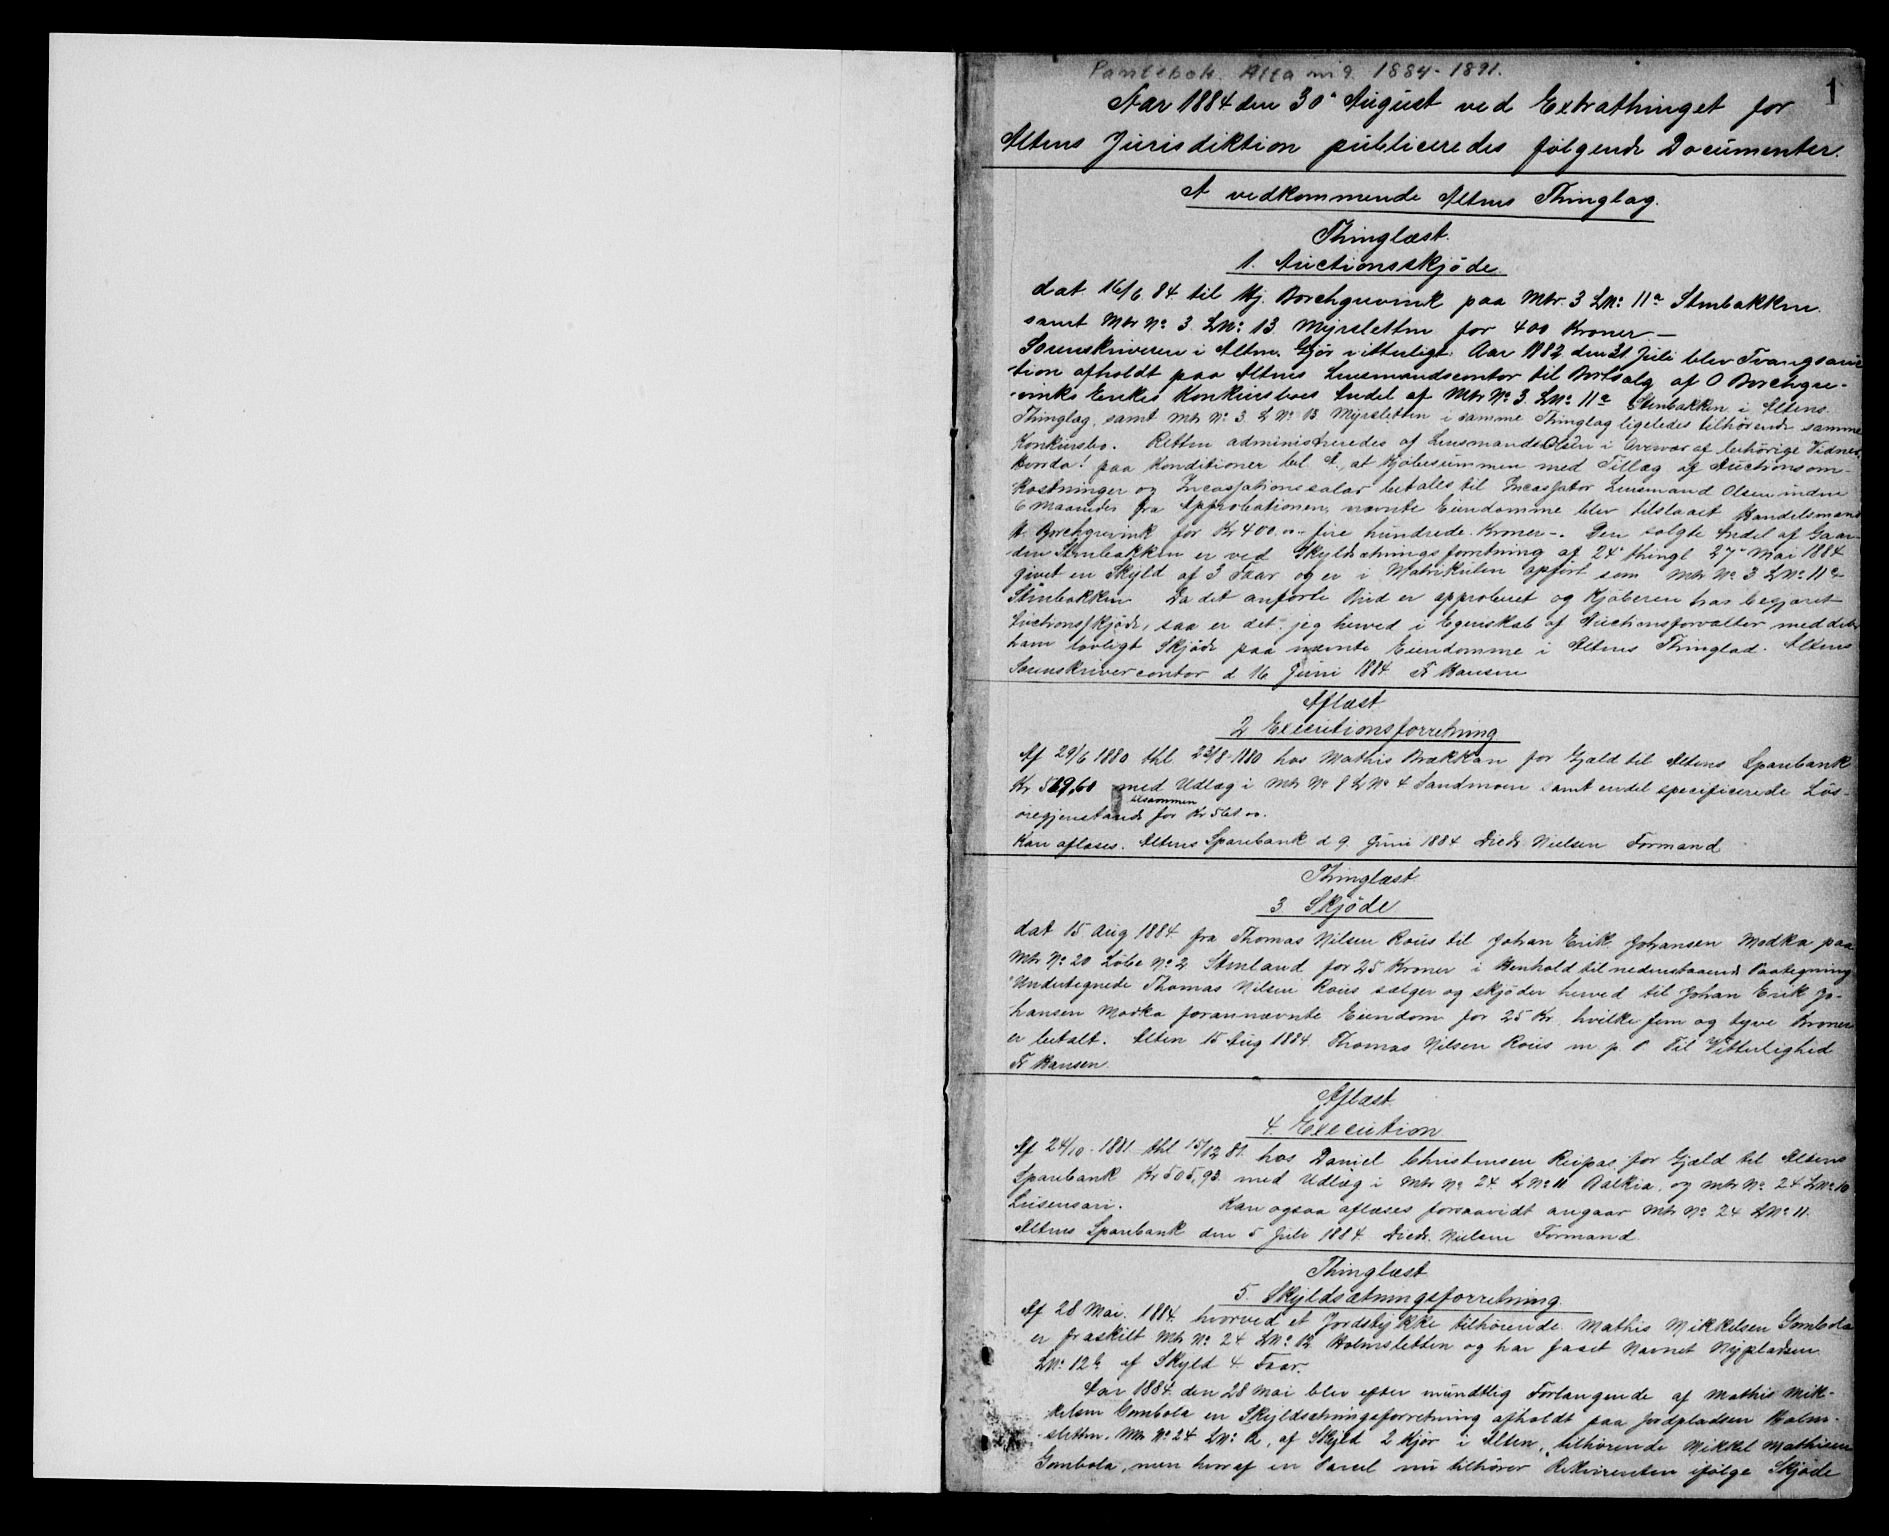 Pantebok Alta nr 9. 1884-1891.
1
Aar 1884 den 30' August ved Extrathinget for
Altens Jurisdiktion publiceredes følgende Documenter.
A vedkommende Altens Thinglag.
Thinglæst.
1. Auctionsskjøde
dat 16/6 84 til Hj. Borchgrevink paa Mtr 3 LNo 11a Stenbakken
samt Mtr No 3 LNo 13 Myrsletten for 400 Kroner—
Sorenskriveren i Alten Gjør vitterligt: Aar 1882 den 31 Juli blev Tvangsauc
tion afholdt paa Altens Lensmandscontor til Bortsalg af O Borchgre-
vinks Enkes Konkursboes Andel af Mtr No 3 LNo 11a Stenbakken i Altens
Thinglag, samt Mtr No 3 LNo 13 Myrsletten i samme Thinglag ligeledes tilhørende samme
Konkursbo. Retten administreredes af Lensmand Olsen i Overvær af tilhørige Vidner.
Hvorda! paa Konditioner lit A, at Kjøbesummen med Tillæg af Auctionsom-
kostninger og Incassationssalær betales til Incassator Lensmand Olsen inden
6 Maaneder fra Approbationen, nævnte Eiendomme blev tilslaaet Handelsmand
H. Borchgrevink for Kr 400.00 fire hundrede Kroner—. Den solgte Andel af Gaar-
den Stenbakken er ved Skyldsætningsforretning af 24' thingl 27' Mai 1884
givet en Skyld af 3 Faar og er i Matrikulen opført som Mtr No 3 LNo 11a
Stenbakken Da det anførte Bud er approberet og Kjøberen har begjæret
Auctionsskjøde, saa er det jeg herved i Egenskab af Auctionsforvalter meddeler
ham lovligt Skjøde paa nævnte Eiendomme i Altens Thinglad. Altens
Sorenskrivercontor d 16 Juni 1884 Fr Hansen
Aflæst
2 Executionsforretning
Af 29/6 1880 thl 23/8-1880 hos Mathis Brækkan for Gjæld til Altens Sparebank
Kr 569,60 med Udlæg i Mtr No 8 LNo 4 Sandmoen samt endel specificerede Løs-
tilsammen
øregjenstande for Kr 561 00.
Kan aflæses. Altens Sparebank d 9 Juni 1884 Diedr. Nielsen Formand
Thinglæst
3 Skjøde
dat 15 Aug 1884 fra Thomas Nilsen Rous til Johan Erik Johansen Modka paa
Mtr No 20 Løbe No 2 Stenland for 25 Kroner i Henhold til nedenstaaende Paategning
"Undertegnede Thomas Nilsen Rous sælger og skjøder herved til Johan Erik Jo-
hansen Modka forannævnte Eiendom for 25 Kr, hvilke fem og tyve Kroner
er betalt. Alten 15 Aug 1884 Thomas Nilsen Rous m p. P Til Vitterlighed
Fr Hansen
Aflæst
4. Execution
Af 24/10-1881 thl 15/12 81 hos Daniel Christensen Reipas for Gjæld til Altens
Sparebank Kr 505,93 med Udlæg i Mtr No 24 LNo 11 Balkia og Mtr No 24 LNo 10
Lusensari. Kan ogsaa aflæses forsaavidt angaar Mtr No 24 LNo 11.
Altens Sparebank den 5 Juli 1884 Diedr. Nielsen Formand
Thinglæst
5. Skyldsætningsforretning.
Af 28 Mai. 1884 hvorved et Jordstykke tilhørende Mathis Mikkelsen Gombola
er fraskilt Mtr No 24 LNo 12 Holmsletten og har faaet Navnet Nypladsen
LNo 12b af Skyld 4 Faar.
Aar 1884 den 28 Mai blev efter mundtlig Forlangende af Mathis Mik-
kelsen Gombola en Skyldsætningsforretning afholdt paa Jordpladsen Holm-
sletten. Mtr No 24 LNo 12, af Skyld 2 Kjør i Alten, tilhørende Mikkel Mathisen
Gombola, men hvoraf en Parcel nu tilhører Rekvirenten ifølge Skjøde